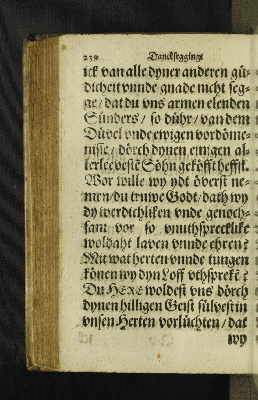 239 Dancksegginge
ick van alle dyner anderen gü-
dicheit vnnde gnade nicht seg-
ge / dat du vns armen elenden
Sünders / so dühr / van dem
Düvel vnde ewigen vordöme-
nisse / dörch dynen einigen al-
lerleevestē Söhn geköfft heffst.
Wor wille wy ydt överst ne-
men / du truwe Godt / dath wy
dy werdichliken vnde genoch-
sam vor so vnuthspreeklike
woldaht laven vnnde ehren?
Mit wat herten vnnde tungen
könen wy dyn Loff vthsprekē?
Du HERE woldest vns dörch
dynen hilligen Geist sülvest in
vnsen Herten vorlüchten / dat
wy